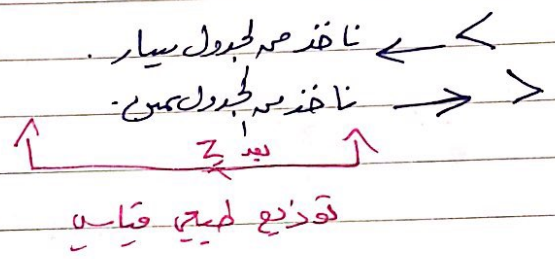 > ← ناخذ من الجدول يسار.
< → ناخذ من الجدول يمين.
Z
توزيع طبيعي قياسي